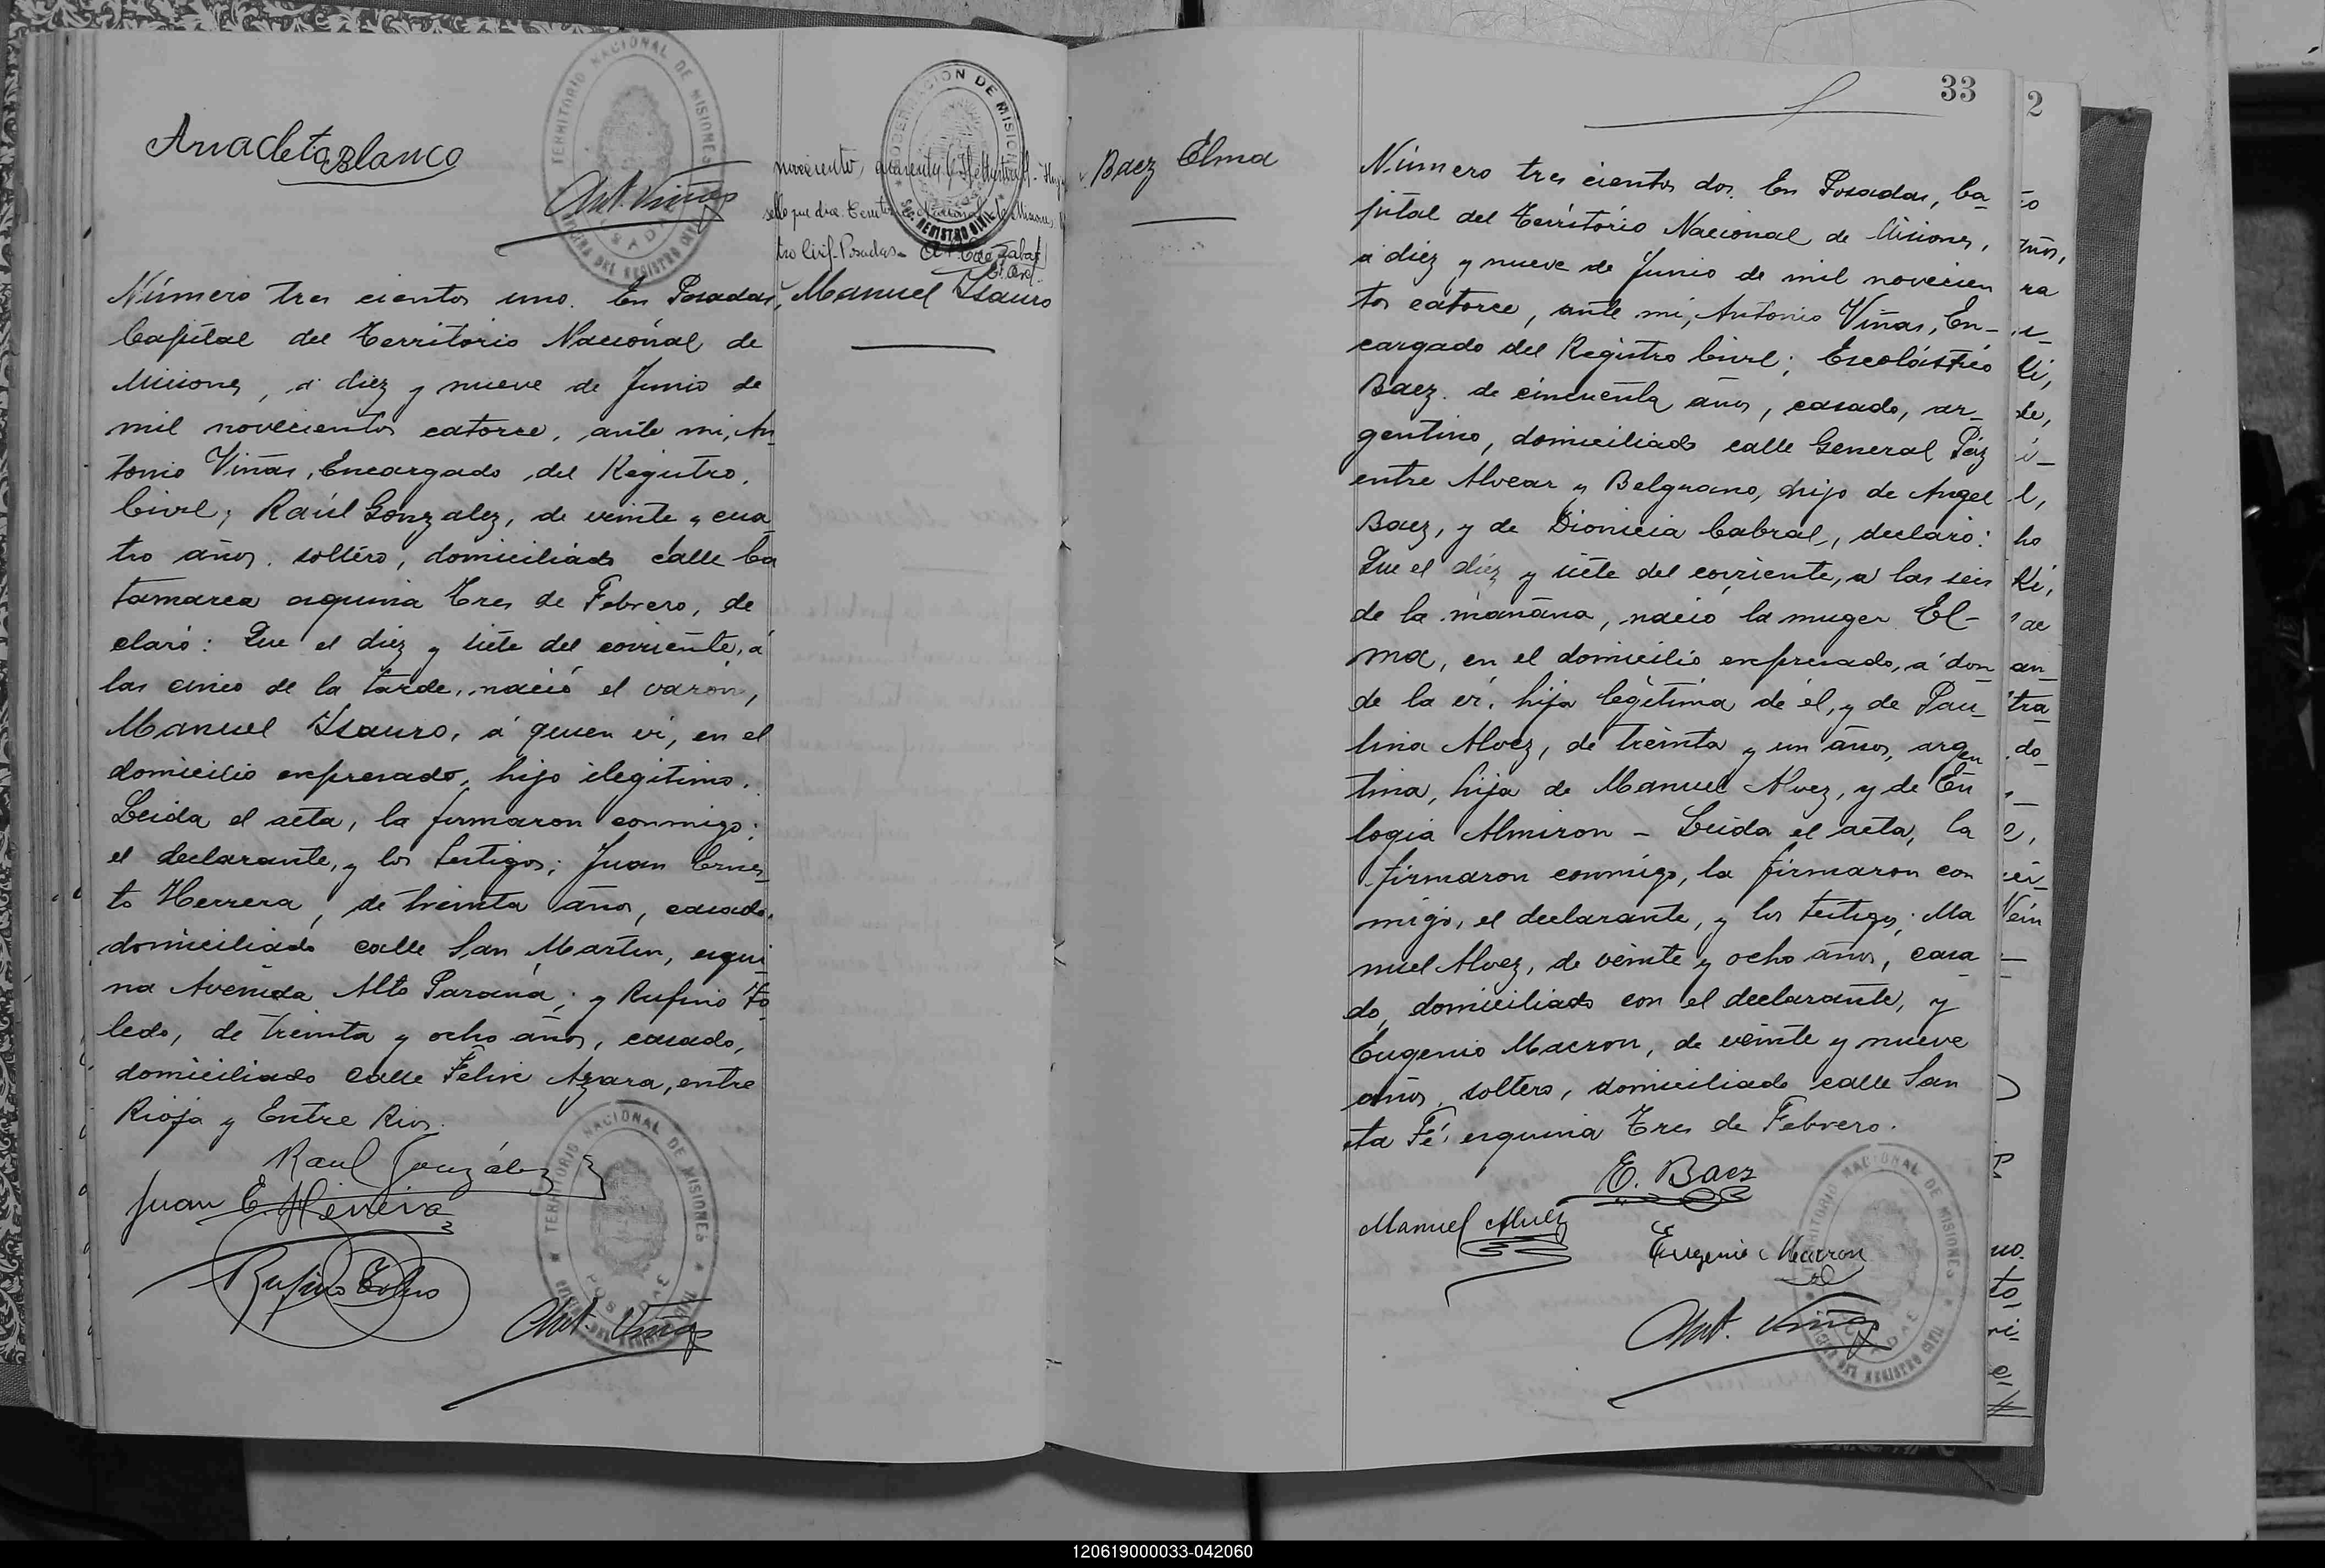 Anacleta Blanco
TERRITORIO NACIONAL DE MISIONES
OFICINA DEL REGISTRO CIVIL
POSADAS
Ant. Viñas
GOBERNACION DE MISIONES
SEC. REGISTRO CIVIL
novecientos cuarenta
sello que dice: Territorio Nacional de Misiones
tro Civil-Posadas-
Número tres cientos uno. En Posadas,
Capital del Territorio Nacional de
Misiones, á diez y nueve de Junio de
mil novecientos catorce, ante mi, An-
tonio Viñas, Encargado del Registro
Civil; Raúl Gonzalez, de veinte y cua-
tro años, soltéro, domiciliado calle Ca
tamarca esquina Tres de Febrero, de
claró: Que el diez y siete del corriente, á
las cinco de la tarde, nació el varón,
Manuel Isauro, á quien ví, en el
domicilio expresado, hijo ilegitimo.
Leida el acta, la firmaron conmigo:
el declarante, y los testigos; Juan Ernes-
to Herrera, de treinta años, casado,
domiciliado calle San Martin, esqui-
na Avenida Alto Paraná; y Rufino To-
ledo, de treinta y ocho años, casado,
domiciliado calle Felix Azara, entre
Rioja y Entre Rios.
Raul González
Juan E. Herrera
Rufino Toledo
Ant. Viñas
TERRITORIO NACIONAL DE MISIONES
OFICINA DEL REGISTRO CIVIL
POSADAS
Manuel Isauro
Baez Elma
33
Número tres cientos dos. En Posadas, Ca-
pital del Territorio Nacional de Misiones,
á diez y nueve de Junio de mil novecien
tos catorce, ante mi, Antonio Viñas, En-
cargado del Registro Civil; Escolástico
Baez, de cincuenta años, casado, ar-
gentino, domiciliado calle General Páz
entre Alvear y Belgrano, hijo de Angel
Baez, y de Dionicia Cabral, declaró:
Que el diez y siete del corriente, á las seis
de la mañana, nació la muger El-
ma, en el domicilio expresado, á don-
de la ví, hija legítima de él, y de Pau-
lina Alvez, de treinta y un años, argen
tina, hija de Manuel Alvez, y de Eu
logia Almiron - Leida el acta, la
firmaron conmigo, la firmaron con
migo, el declarante, y los testigos; Ma
nuel Alvez, de veinte y ocho años, casa
do, domiciliado con el declarante, y
Eugenio Macron, de veinte y nueve
años, soltero, domiciliado calle San
ta Fé, esquina Tres de Febrero.
E. Baez
Manuel Alvez
Eugenio Macron
Ant. Viñas
TERRITORIO NACIONAL DE MISIONES
OFICINA DEL REGISTRO CIVIL
POSADAS
2
ra
de,
l,
ho
an-
tra-
do-
to-
120619000033-042060